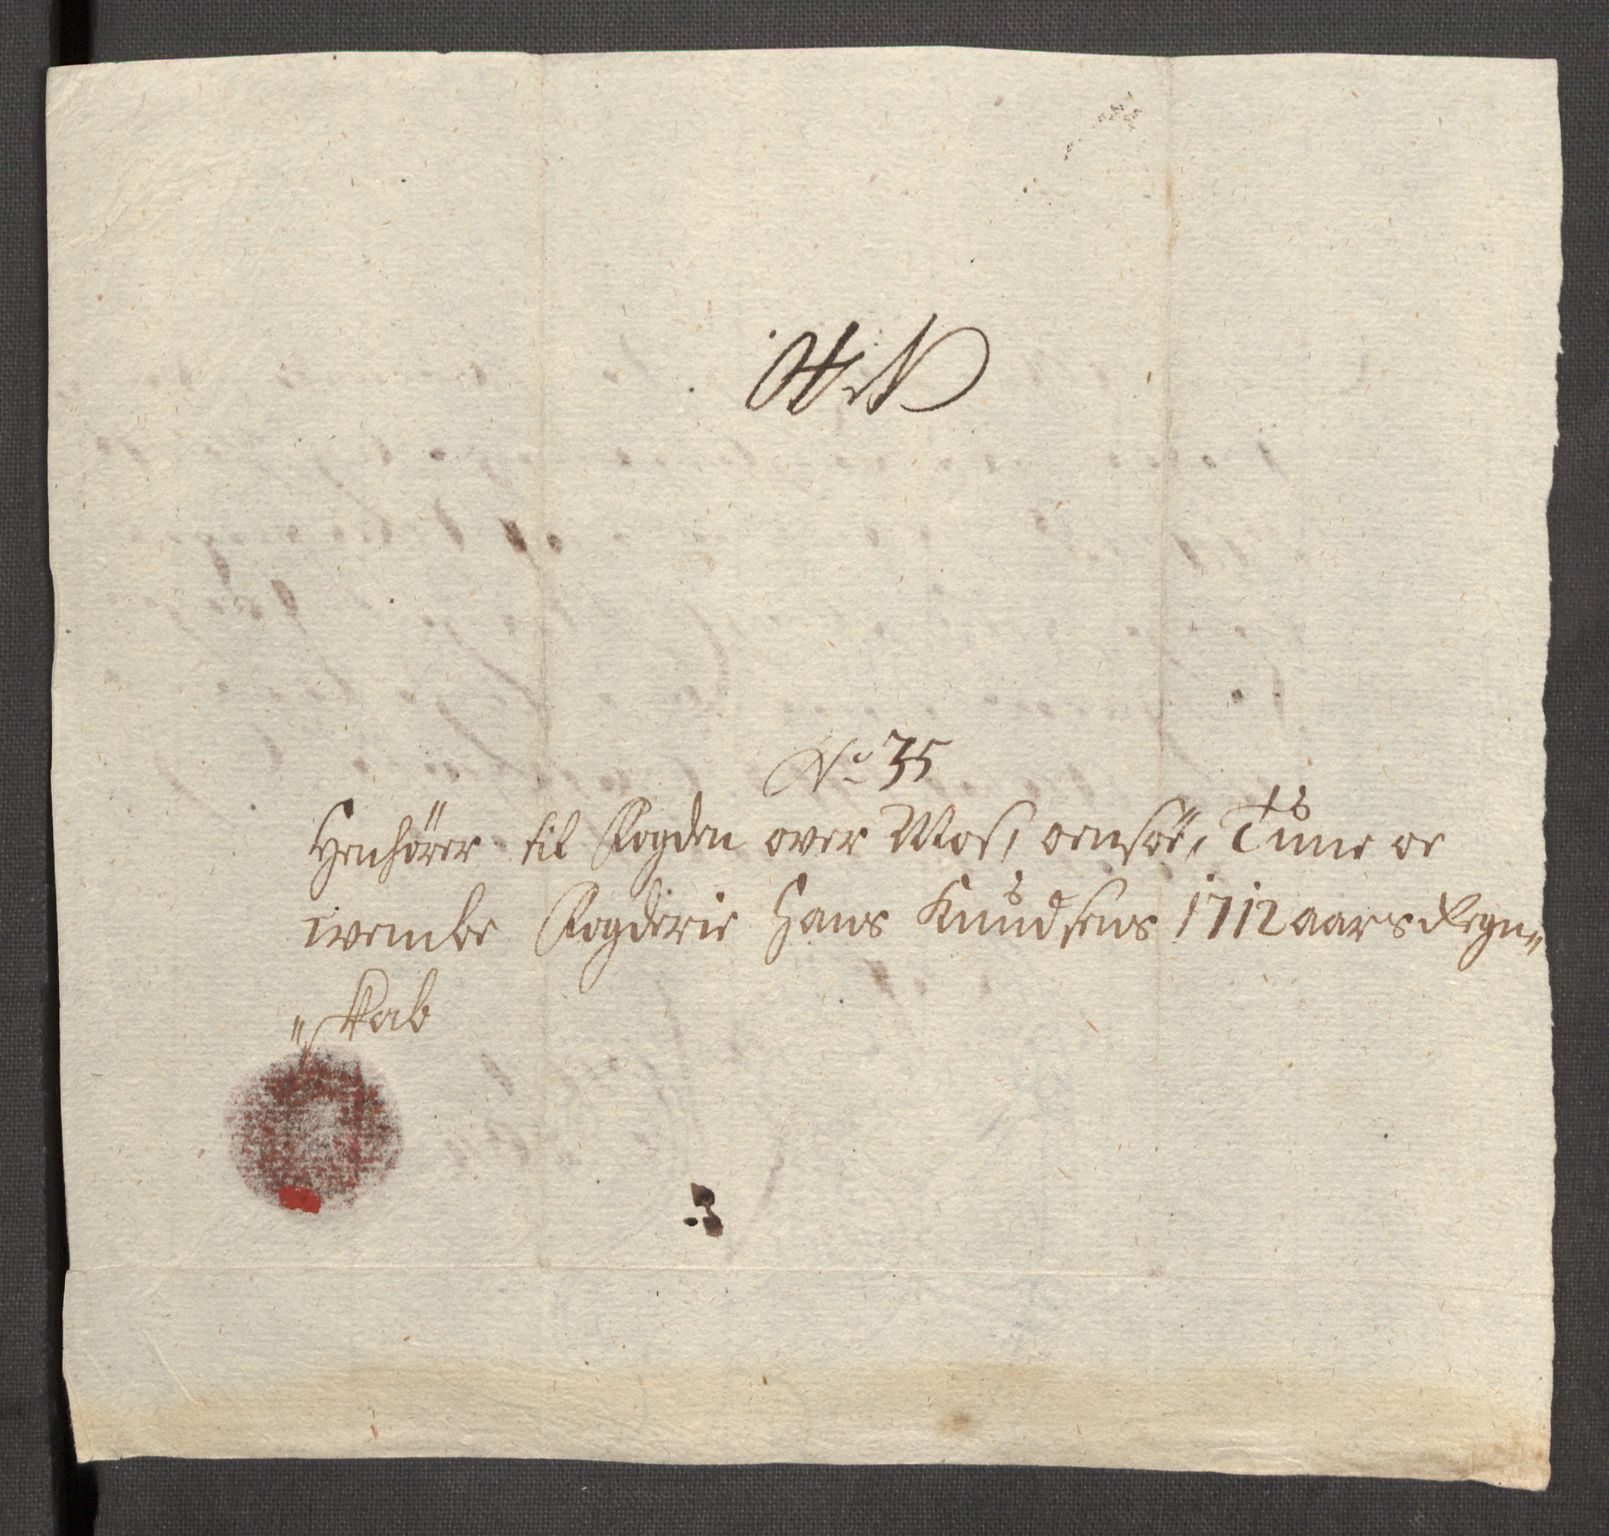 No 35
Henhörer til Fogden over Moss, oensöe, Tune oc
wembe Fogderie Hans Knudsens 1712 aars Regn=
=skab